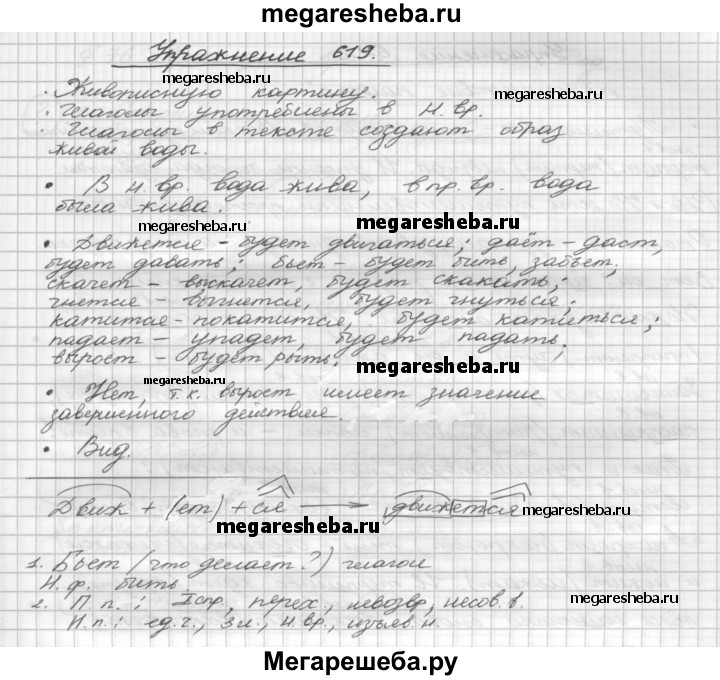 megaresheba.ru
Упражнение 619.
megaresheba.ru
· Живописную картину.
megaresheba.ru
· Глаголы употреблены в н. вр.
· Глаголы в тексте создают образ
живой воды.
• В н. вр. вода жива, в пр. вр. вода
была жива.
megaresheba.ru
megaresheba.ru
• Движется – будет двигаться; даёт – даст,
будет давать; бьет – будет бить, забьет;
скачет – выскачет, будет скакать;
гнется – выгнется, будет гнуться;
катится – покатится, будет катиться;
падает – упадет, будет падать;
вырост – будет рыть.
megaresheba.ru
megaresheba.ru
• Нет, т.к. вырост имеет значение
завершенного действия.
• Вид.
Движ + (ет) + ся → движется
megaresheba.ru
megaresheba.ru
1. Бьет (что делает?) глагол
Н.ф. бить
2. П.п.: I спр., перех., невозвр., несов.в.
Н.п.: ед.ч., 3 л., н.вр., изъяв.н.
megaresheba.ru
megaresheba.ru
Мегарешеба.ру